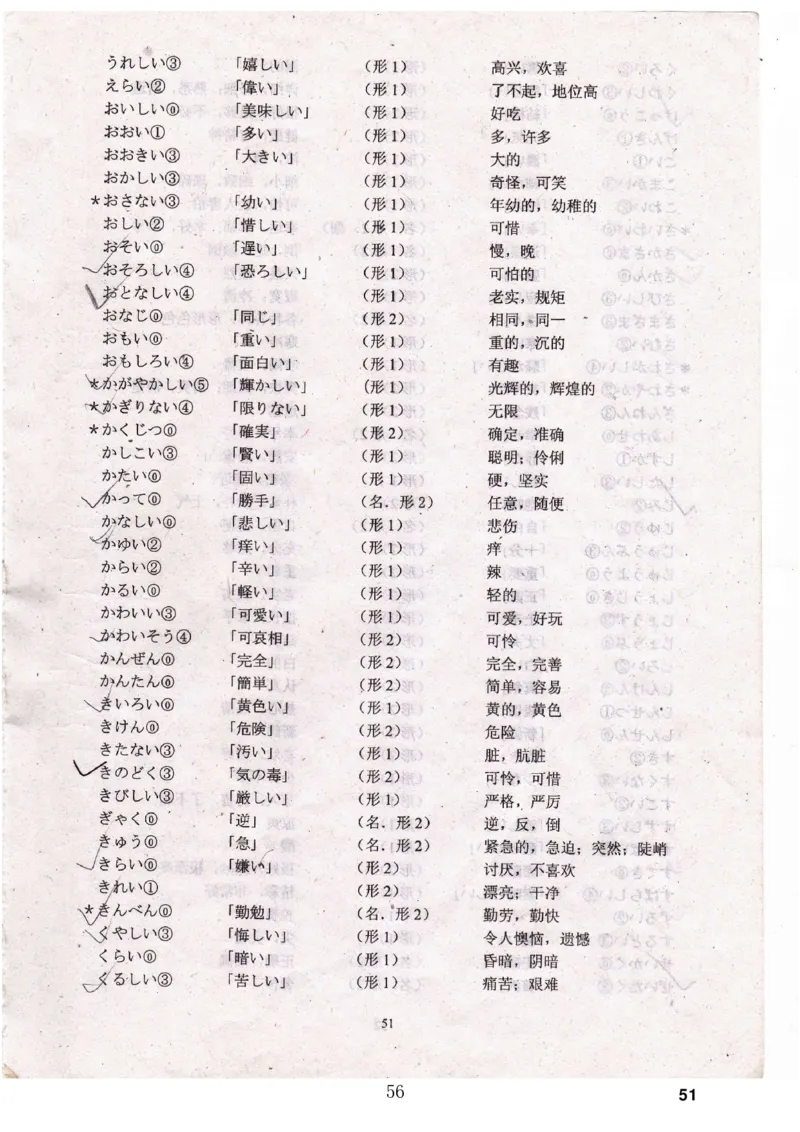 うれしい③ 「嬉しい」 （形1） 高兴，欢喜
えらい② 「偉い」 （形1） 了不起，地位高
おいしい⓪ 「美味しい」 （形1） 好吃
おおい① 「多い」 （形1） 多，许多
おおきい③ 「大きい」 （形1） 大的
おかしい③ （形1） 奇怪，可笑
*おさない③ 「幼い」 （形1） 年幼的，幼稚的
おしい② 「惜しい」 （形1） 可惜
おそい⓪ 「遅い」 （形1） 慢，晚
おそろしい④ 「恐ろしい」 （形1） 可怕的
おとなしい④ （形1） 老实，规矩
おなじ⓪ 「同じ」 （形2） 相同，同一
おもい⓪ 「重い」 （形1） 重的，沉的
おもしろい④ 「面白い」 （形1） 有趣
*かがやかしい⑤ 「輝かしい」 （形1） 光辉的，辉煌的
*かぎりない④ 「限りない」 （形1） 无限
*かくじつ⓪ 「確実」 （形2） 确定，准确
かしこい③ 「賢い」 （形1） 聪明；伶俐
かたい⓪ 「固い」 （形1） 硬，坚实
かって⓪ 「勝手」 （名．形2） 任意，随便
かなしい⓪ 「悲しい」 （形1） 悲伤
かゆい② 「痒い」 （形1） 痒
からい② 「辛い」 （形1） 辣
かるい⓪ 「軽い」 （形1） 轻的
かわいい③ 「可愛い」 （形1） 可爱，好玩
かわいそう④ 「可哀相」 （形2） 可怜
かんぜん⓪ 「完全」 （形2） 完全，完善
かんたん⓪ 「簡単」 （形2） 简单，容易
きいろい⓪ 「黄色い」 （形1） 黄的，黄色
きけん⓪ 「危険」 （形2） 危险
きたない③ 「汚い」 （形1） 脏，肮脏
きのどく③ 「気の毒」 （形2） 可怜，可惜
きびしい③ 「厳しい」 （形1） 严格，严厉
ぎゃく⓪ 「逆」 （名．形2） 逆，反，倒
きゅう⓪ 「急」 （名．形2） 紧急的，急迫；突然；陡峭
きらい⓪ 「嫌い」 （形2） 讨厌，不喜欢
きれい① （形2） 漂亮；干净
*きんべん⓪ 「勤勉」 （名．形2） 勤劳，勤快
くやしい③ 「悔しい」 （形1） 令人懊恼，遗憾
くらい⓪ 「暗い」 （形1） 昏暗，阴暗
くるしい③ 「苦しい」 （形1） 痛苦；艰难
51
56 51